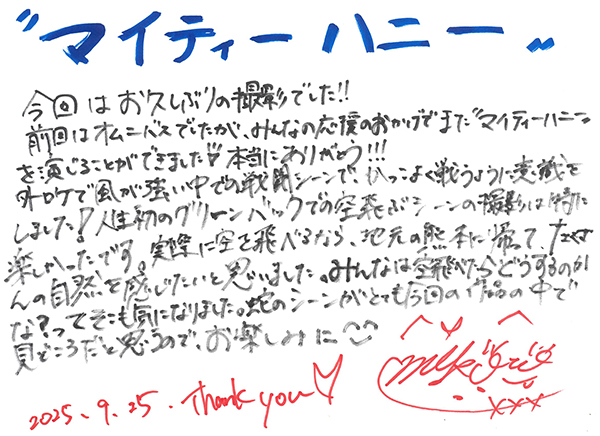 〝マイティーハニー〟
今回はお久しぶりの撮影でした!!
前回はオムニバスでしたが、みんなの応援のおかげでまた〝マイティーハニー〟
を演じることができました♡本当にありがとう!!!
外ロケで風が強い中での戦闘シーンで、かっこよく戦うように意識を
しました!人生初のグリーンバックでの空飛ぶシーンの撮影は特に
楽しかったです。実際に空を飛べるなら、地元の熊本に帰って、たくさ
んの自然を感じたいと思いました。みんなは空飛べたらどうするのか
な?ってそこも気になりました。蛇のシーンがとても今回の作品の中で
見どころだと思うので、お楽しみに
2025.9.25. Thank you♡
xxx